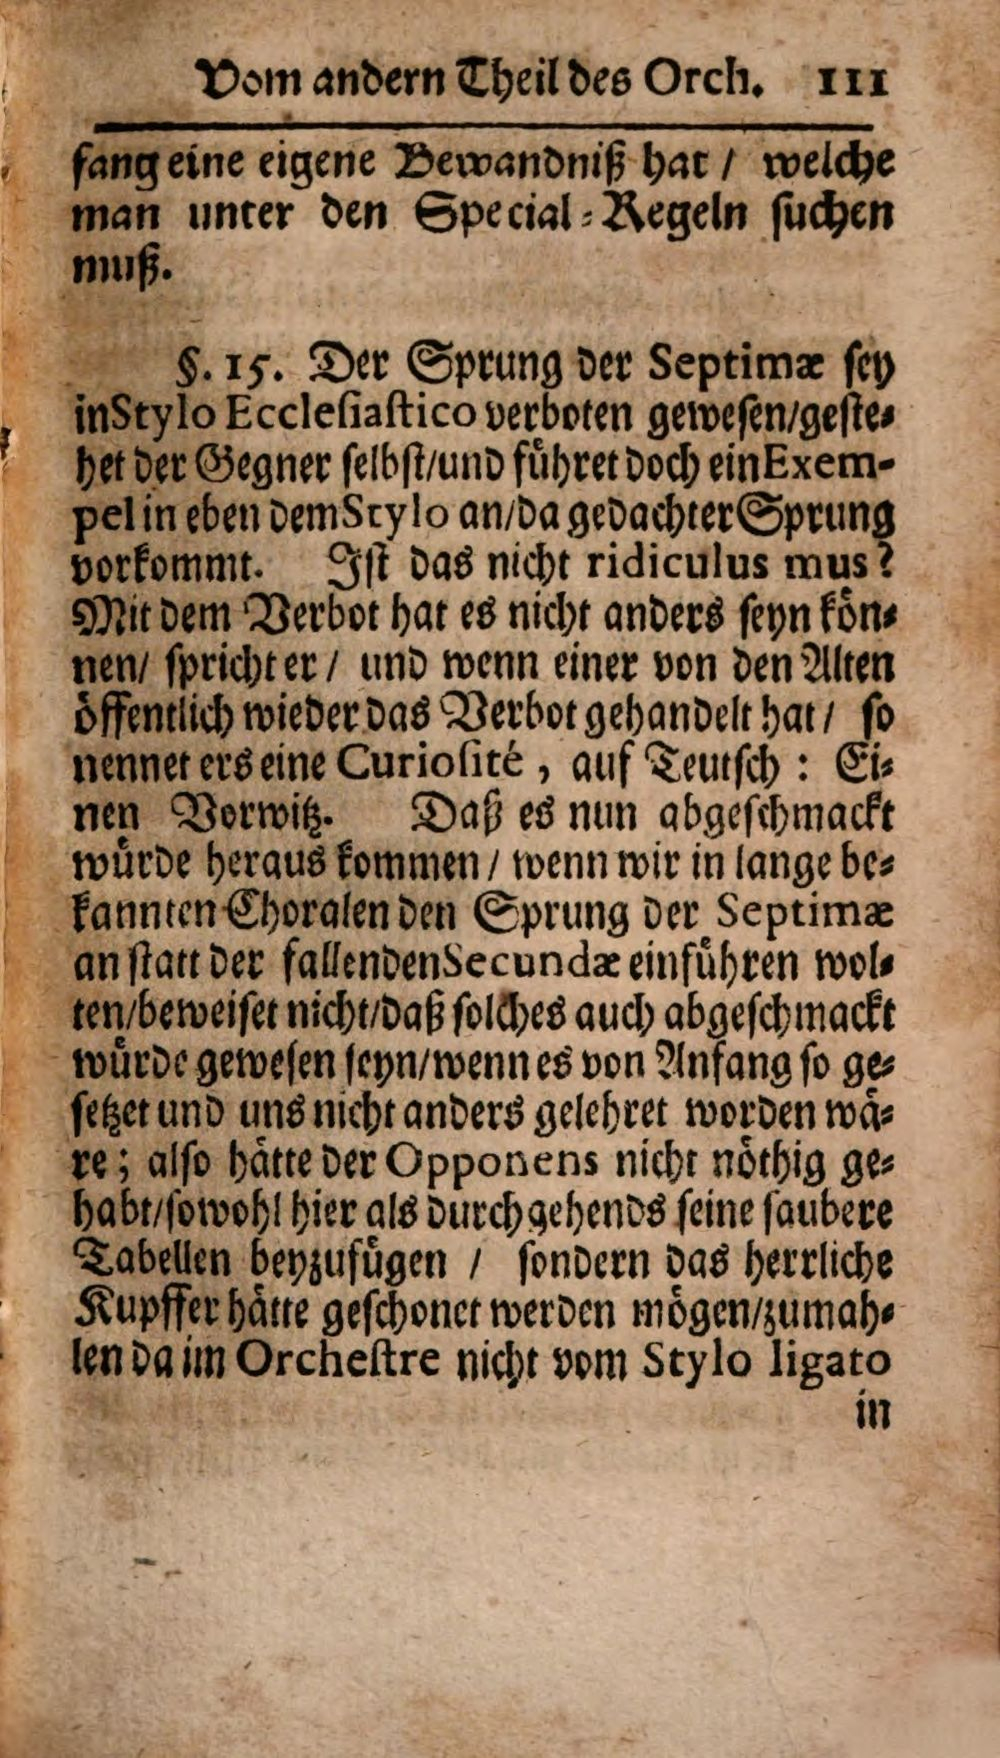 Vom andern Theil des Orch. 111
fang eine eigene Bewandniß hat / welche
man unter den Special-Regeln suchen
muß.
§. 15. Der Sprung der Septimæ sey
in Stylo Ecclesiastico verboten gewesen/geste-
het der Gegner selbst/und führet doch ein Exem-
pel in eben dem Stylo an/da gedachter Sprung
vorkommt. Ist das nicht ridiculus mus?
Mit dem Verbot hat es nicht anders seyn kön-
nen/ spricht er / und wenn einer von den Alten
öffentlich wieder das Verbot gehandelt hat / so
nennet ers eine Curiosité, auf Teutsch: Ei-
nen Vorwitz. Daß es nun abgeschmackt
würde heraus kommen / wenn wir in lange be-
kannten Choralen den Sprung der Septimæ
an statt der fallenden Secundæ einführen wol-
ten/beweiset nicht/daß solches auch abgeschmackt
würde gewesen seyn/wenn es von Anfang so ge-
setzet und uns nicht anders gelehret worden wä-
re; also hätte der Opponens nicht nöthig ge-
habt/sowohl hier als durchgehends seine saubere
Tabellen beyzufügen / sondern das herrliche
Kupffer hätte geschonet werden mögen/zumah-
len da im Orchestre nicht vom Stylo ligato
in